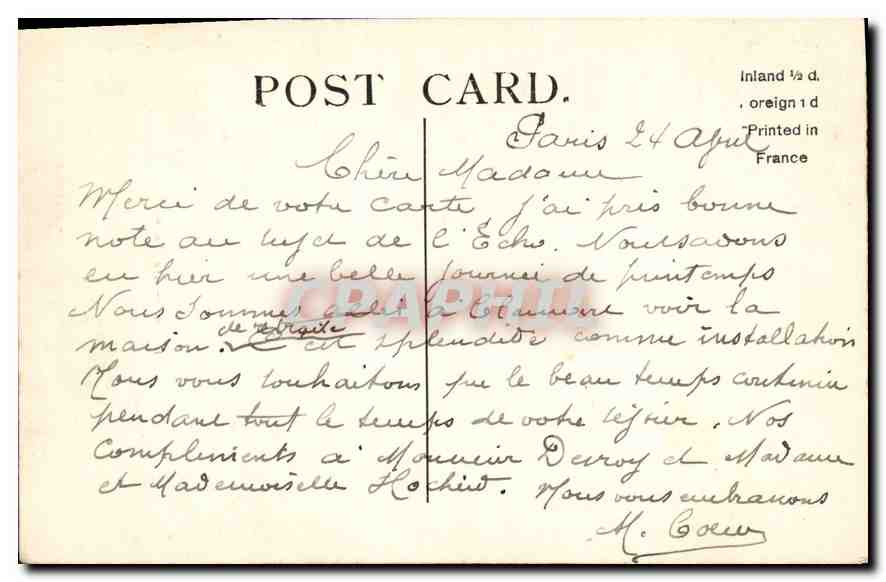 POST CARD.
Inland ½ d.
oreign 1 d
Printed in
France
Paris 24 Avril
Chère Madame
Merci de votre carte j'ai pris bonne
note au sujet de l'Echo. Nous avons
eu hier une belle journée de printemps
Nous sommes allés à voir la
de retraite
maison. C'est splendide comme installation
Nous vous souhaitons que le beau temps continue
pendant tout le temps de votre séjour. Nos
Compliments à Monsieur et Madame
et Mademoiselle. Nous vous embrassons
M.